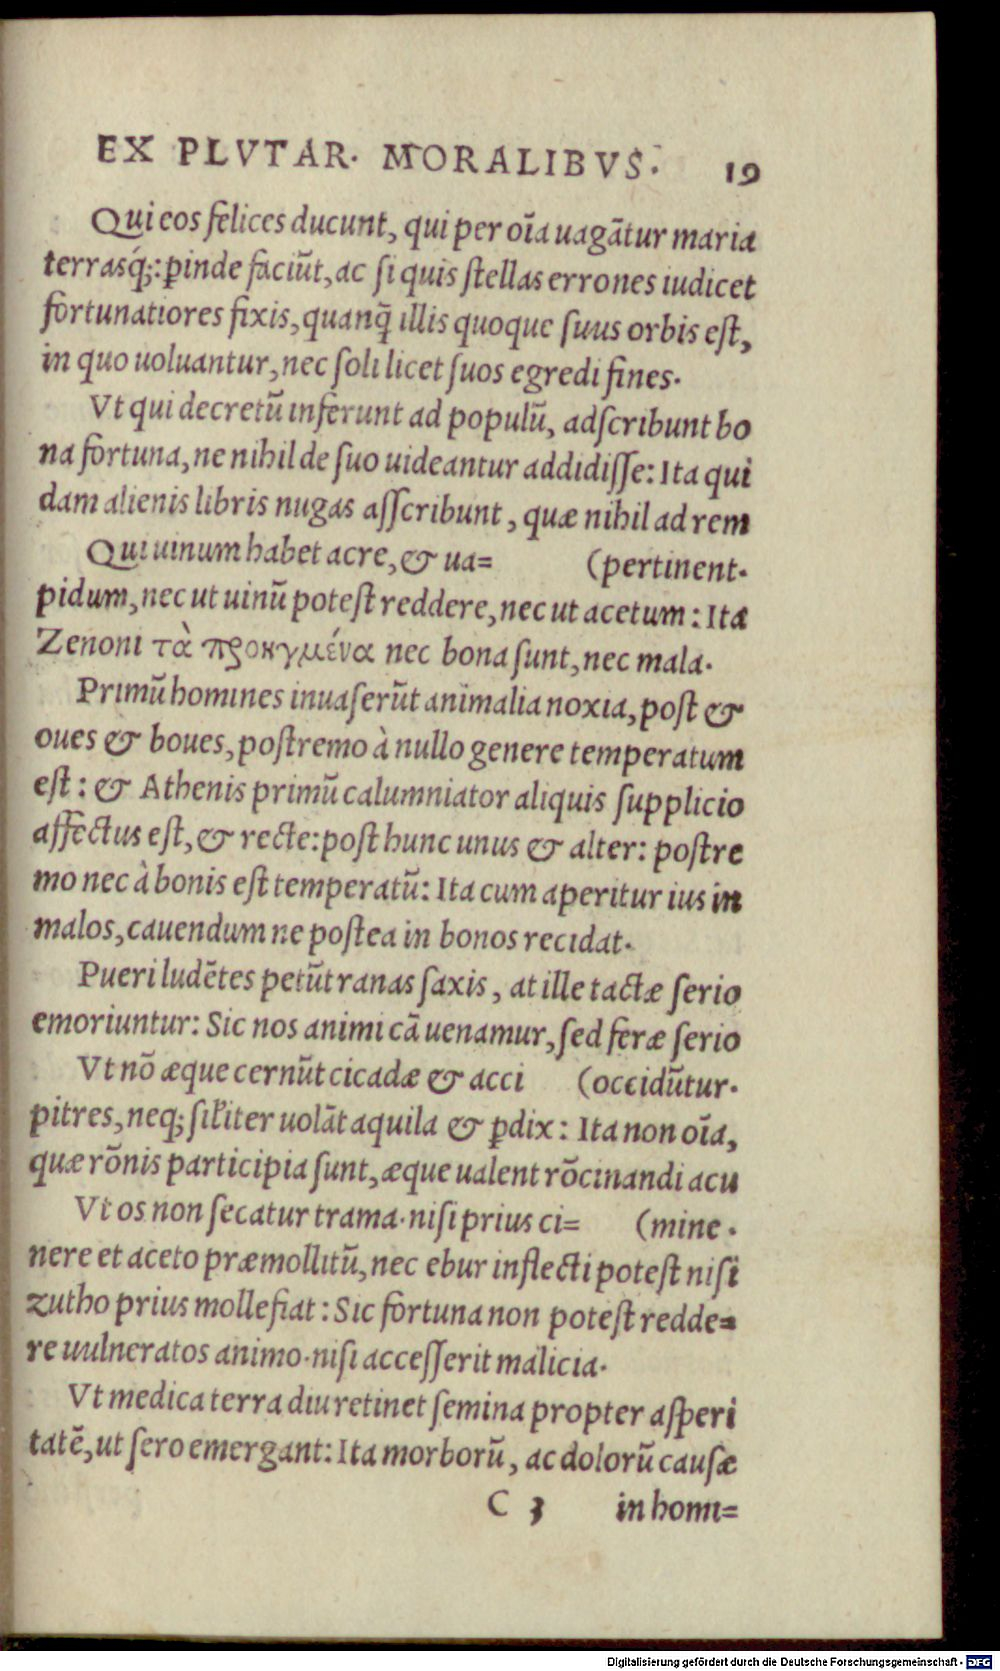 EX PLVTAR. MORALIBVS. 19
Qui eos felices ducunt, qui per oīa uagātur maria
terrasq́;: ꝑinde faciūt, ac si quis stellas errones iudicet
fortunatiores fixis, quanq̄ illis quoque suus orbis est,
in quo uoluantur, nec soli licet suos egredi fines.
Vt qui decretū inferunt ad populū, adscribunt bo
na fortuna, ne nihil de suo uideantur addidisse: Ita qui
dam alienis libris nugas asscribunt, quæ nihil ad rem
Qui uinum habet acre, & ua= (pertinent.
pidum, nec ut uinū potest reddere, nec ut acetum: Ita
Zenoni τὰ προηγμένα nec bona sunt, nec mala.
Primū homines inuaserūt animalia noxia, post &
oues & boues, postremo à nullo genere temperatum
est: & Athenis primū calumniator aliquis supplicio
affectus est, & recte: post hunc unus & alter: postre
mo nec à bonis est temperatū: Ita cum aperitur ius in
malos, cauendum ne postea in bonos recidat.
Pueri ludētes petūt ranas saxis, at ille tactæ serio
emoriuntur: Sic nos animi cā uenamur, sed feræ serio
Vt nō æque cernūt cicadæ & acci (occidūtur.
pitres, neq; sil'iter uolāt aquila & ꝑdix: Ita non oīa,
quæ rōnis participia sunt, æque ualent rōcinandi acu
Vt os non secatur trama. nisi prius ci= (mine.
nere et aceto præmollitū, nec ebur inflecti potest nisi
zutho prius mollefiat: Sic fortuna non potest redde=
re uulneratos animo. nisi accesserit malicia.
Vt medica terra diu retinet semina propter asperi
tatē, ut sero emergant: Ita morborū, ac dolorū causæ
C 3 in homi=
Digitalisierung gefördert durch die Deutsche Forschungsgemeinschaft - DFG